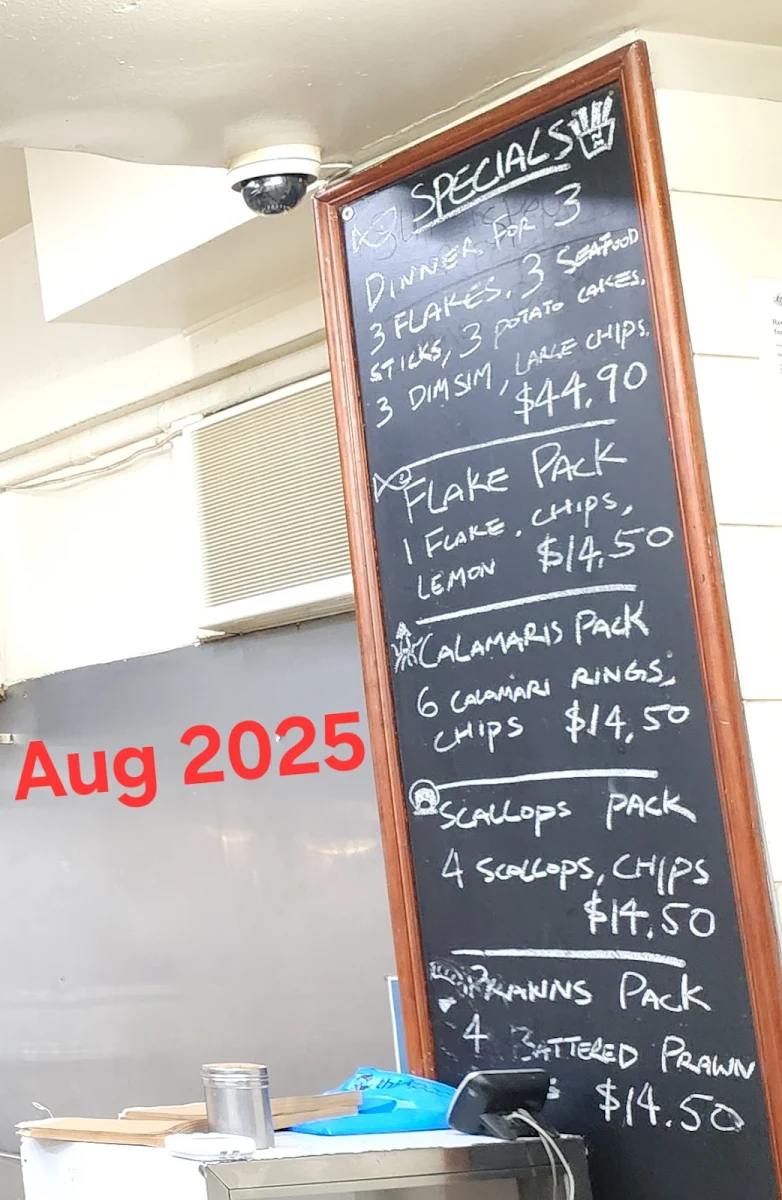 SPECIALS
DINNER FOR 3
3 FLAKES, 3 SEAFOOD
STICKS, 3 POTATO CAKES,
3 DIMSIM, LARGE CHIPS.
$44.90
FLAKE PACK
1 FLAKE, CHIPS,
LEMON $14.50
CALAMARIS PACK
6 CALAMARI RINGS,
CHIPS $14.50
SCALLOPS PACK
4 SCALLOPS, CHIPS
$14.50
PRAWNS PACK
4 BATTERED PRAWN
$14.50
Aug 2025